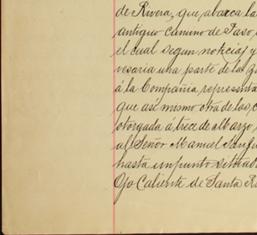 de Rivera, que abarca la
antiguo camino de Paso,
el cual segun noticias y
vesaria una parte de las
á la Compañia representa
que asi mismo otra de las
otorgada á trece de Marzo
al Señor Manuel
hasta un punto situad
Ojo Caliente de Santa R